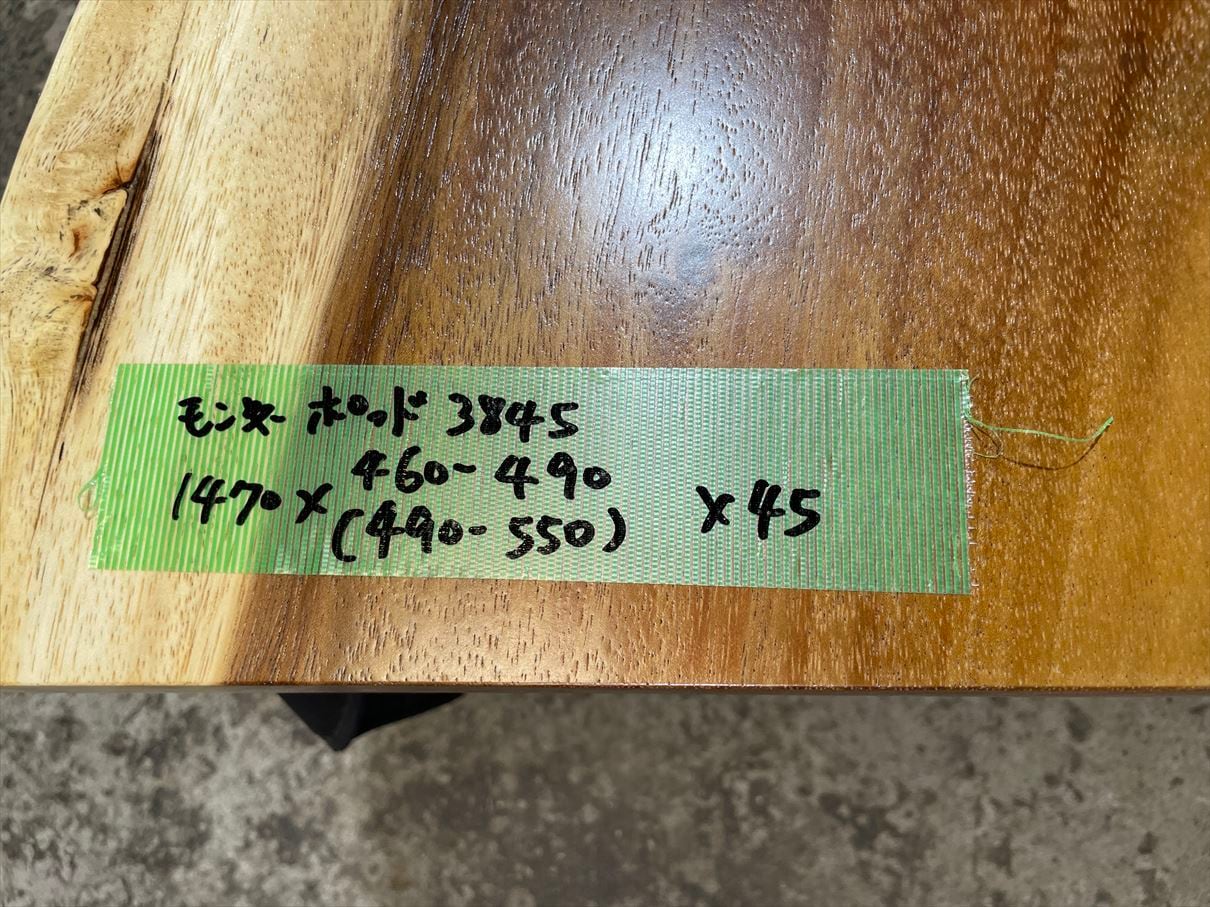 モンキーポッド 3845
1470×460-490
(490-550) ×45